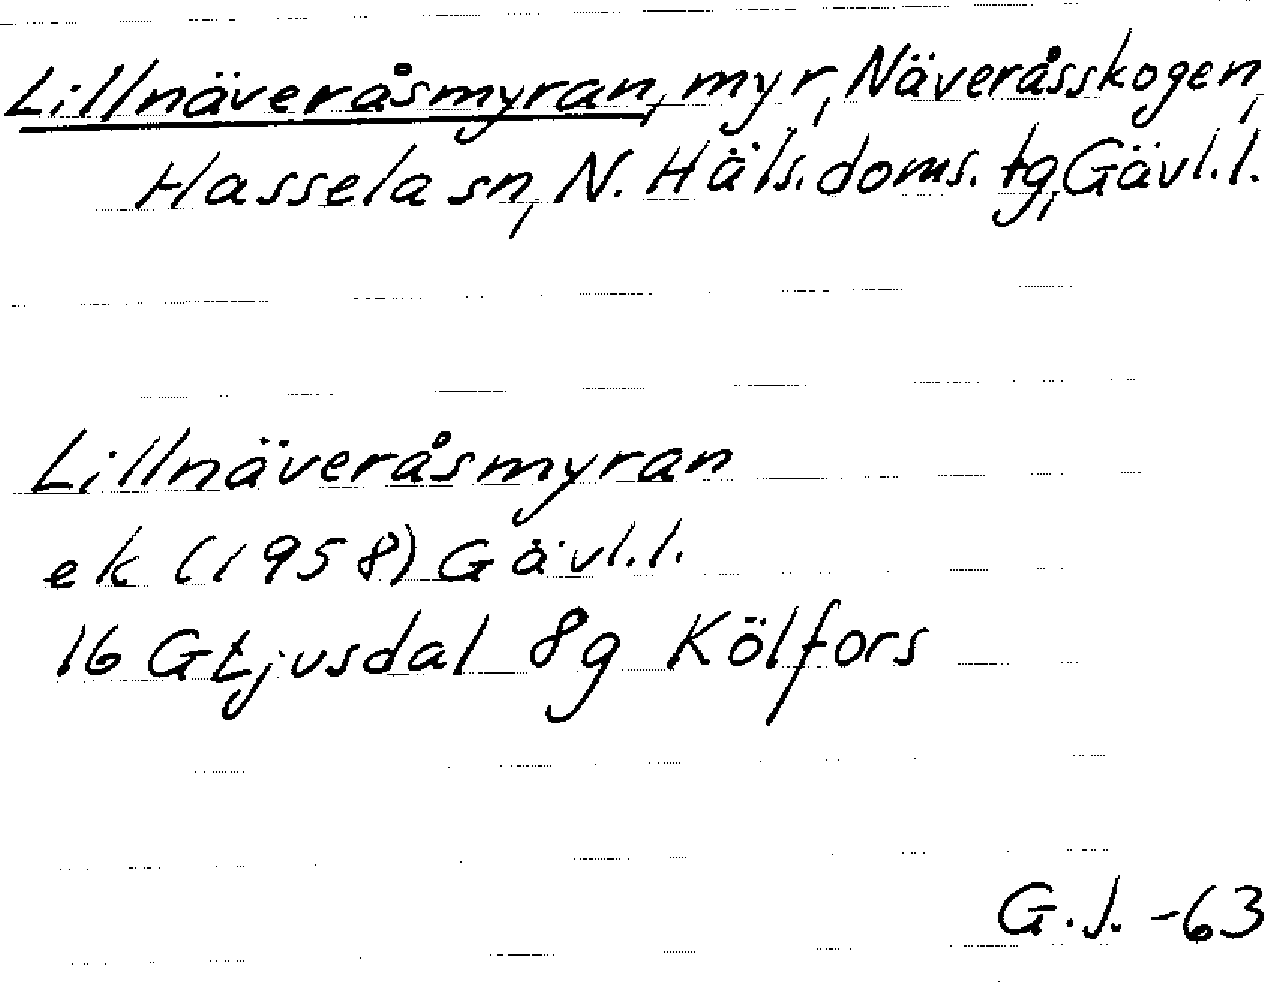 Lillnäveråsmyran, myr, Näveråsskogen,
Hassela sn, N. Häls. doms. tg, Gävl.l.
Lillnäveråsmyran
ek (1958) Gävl.l.
16 G Ljusdal 8g Kölfors
G.J. -63